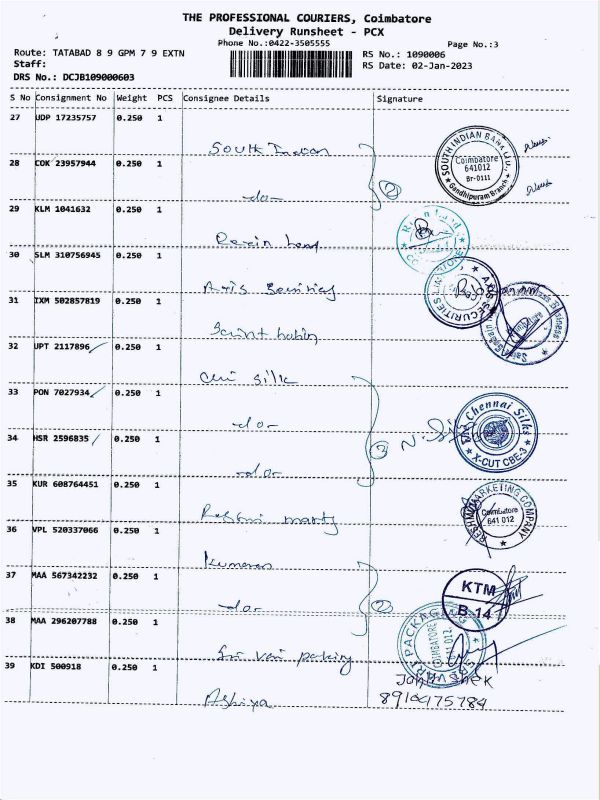 THE PROFESSIONAL COURIERS, Coimbatore
Delivery Runsheet - PCX
Phone No.:0422-3505555
Page No.:3
Route: TATABAD 8 9 GPM 7 9 EXTN
RS No.: 1090006
Staff:
RS Date: 02-Jan-2023
DRS No.: DCJB109000603
S No Consignment No Weight PCS Consignee Details Signature
27 UDP 17235757 0.250 1
South Indian
SOUTH INDIAN BANK
Coimbatore
641012
Br-0111
Gandhipuram Branch
28 COK 23957944 0.250 1
-do-
2
29 KLM 1041632 0.250 1
30 SLM 310756945 0.250 1
Axis
AXIS SECURITIES LIMITED
31 IXM 502857819 0.250 1
32 UPT 2117896 0.250 1
silk
33 PON 7027934 0.250 1
-do-
The Chennai Silks
X-CUT CBE-3
34 HSR 2596835 0.250 1
3
-do-
35 KUR 608764451 0.250 1
MARKETING COMPANY
Coimbatore
641 012
36 VPL 520337066 0.250 1
Kumaran
37 MAA 567342232 0.250 1
-do-
2
KTM
B-14
38 MAA 296207788 0.250 1
Sri vari packing
39 KDI 500918 0.250 1
Ashiya